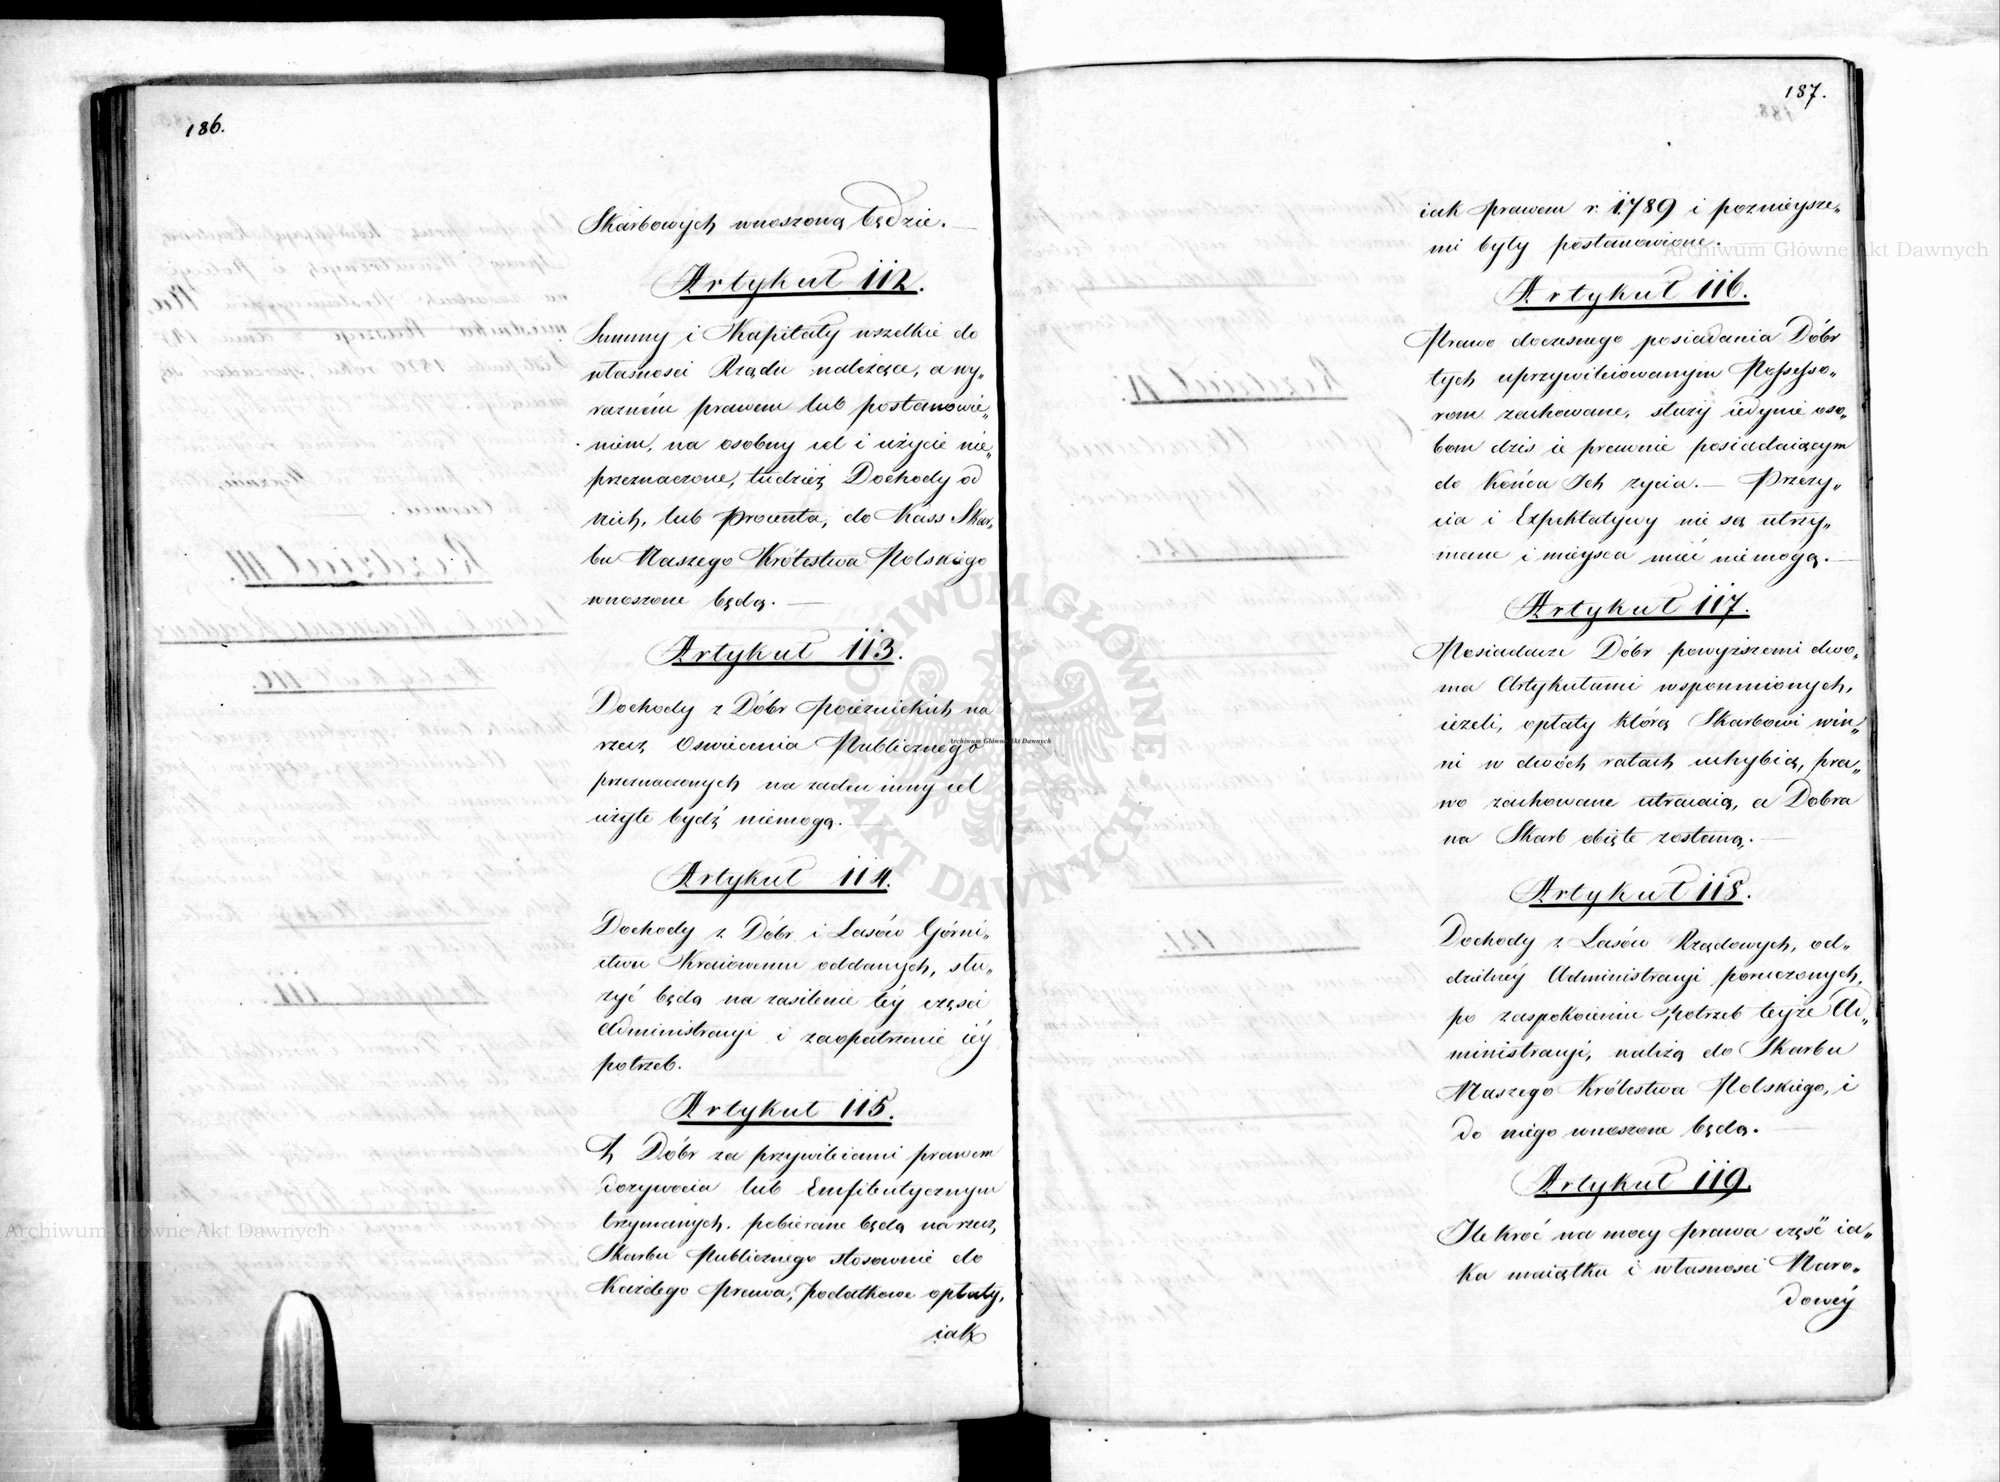 186.
Skarbowych wnoszoną będzie. —
Artykuł 112.
Summy i Kapitały wszelkie do
własnosci Rządu należące, a wy„
raznem prawem lub postanowie„
niem, na osobny cel i użycie nie„
przeznaczone, tudzież Dochody od
nich, lub procenta, do Kass Skar„
bu Naszego Królestwa Polskiego
wnoszone będą. —
Artykuł 113.
Dochody z Dóbr Pojezuickich na
rzecz Oswiecenia Publicznego
przeznaczonych na żaden inny cel
użyte bydź niemogą.
Artykuł 114.
Dochody z Dóbr i Lasów Górni„
ctwu Kraiowemu oddanych, słu„
żyć będą na zasilenie téy części
Administracyi i zaopatrzenie iéy
potrzeb.
Artykuł 115.
Z Dóbr za przywileiami prawem
dożywocia lub Emfiteutycznym
trzymanych, pobierane będą na rzecz
Skarbu Publicznego stosownie do
Każdego prawa, podatkowe opłaty,
iak
187.
iak prawem r. 1789 i poznieysze„
mi były postanowione.
Artykuł 116.
Prawo doczesnego posiadania Dóbr
tych uprzywileiowanym Possesso„
rom zachowane, służy iedynie oso„
bom dzis ie prawnie posiadaiącym
do Końca Ich życia. — Przeży„
cia i Expektatywy nie są utrzy„
mane i mieysca mieć niemogą. —
Artykuł 117.
Posiadacze Dóbr powyższemi dwo„
ma Artykułami wspomnionych,
ieżeli, opłaty którą Skarbowi win„
ni w dwóch ratach uchybią, pra„
wo zachowane utracaią, a Dobra
na Skarb obięte zostaną. —
Artykuł 118.
Dochody z Lasów Rządowych, od„
dzielnéy Administracyi poruczonych,
po zaspokoieniu potrzeb teyże Ad„
ministracyi, należą do Skarbu
Naszego Królestwa Polskiego, i
do niego wnoszone będą. —
Artykuł 119.
Ile kroć na mocy prawa część ia„
ka maiątku i własnosci Naro„
dowéy
Archiwum Główne Akt Dawnych
Archiwum Główne Akt Dawnych
Archiwum Główne Akt Dawnych
ARCHIWUM GŁÓWNE AKT DAWNYCH